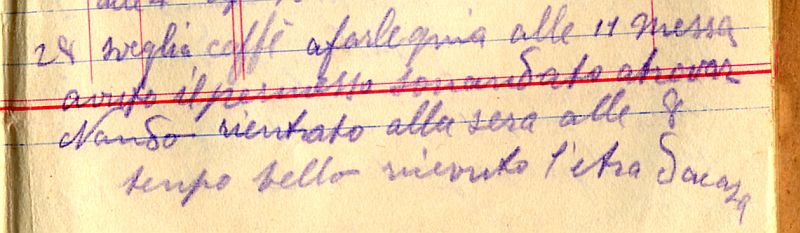 28 sveglia caffè a far legnia alle 11 messa
avuto il permesso sonandato atrovar
Nando rientrato alla sera alle 8
tenpo bello ricevuto l'etra Da casa